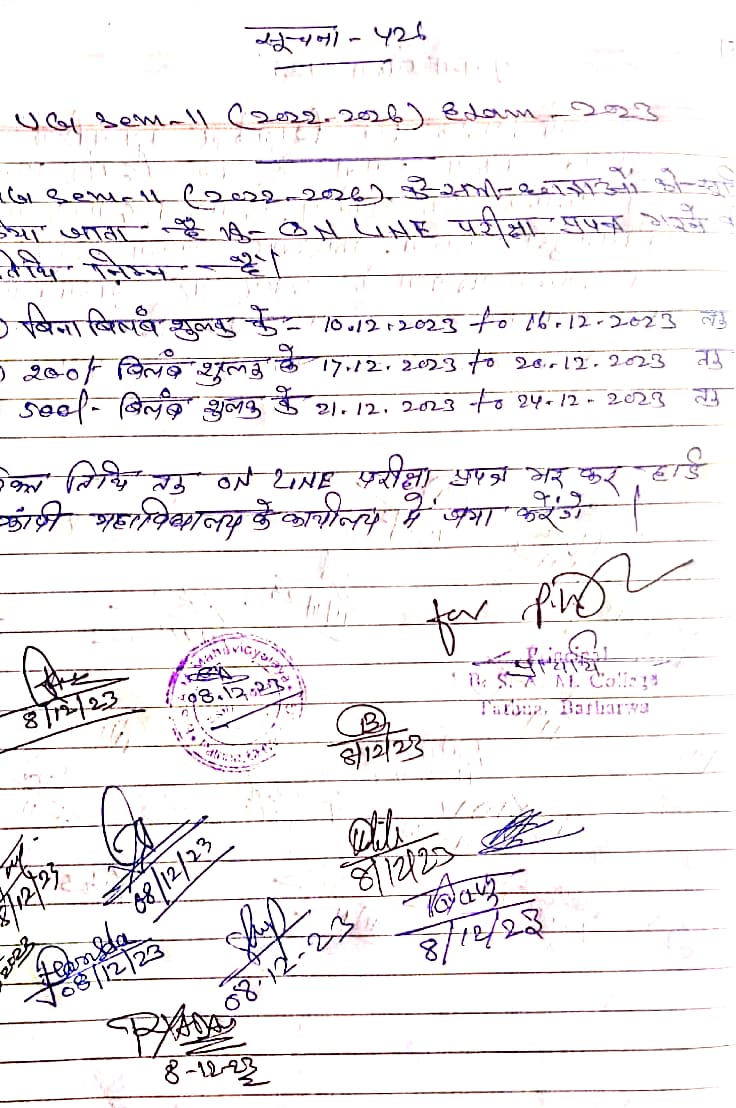 सूचना - 426
UG Sem-II (2022-2026) Exam - 2023
UG Sem-II (2022-2026) के सभी छात्राओं को
जाता है कि ON LINE परीक्षा प्रपत्र भरने
तिथि निम्न है।
बिना विलंब शुल्क के - 10.12.2023 to 16.12.2023 तक
200/- विलंब शुल्क के 17.12.2023 to 20.12.2023 तक
500/- विलंब शुल्क के 21.12.2023 to 24.12.2023 तक
तिथि तक ON LINE परीक्षा प्रपत्र भर कर हार्ड
कॉपी महाविद्यालय के कार्यालय में जमा करेंगे।
for
प्राचार्य
Principal
B. S. A. M. College
Barharwa
8/12/23
08.12.23
8/12/23
08/12/23
8/12/23
8/12/23
08/12/23
08.12.23
8/12/23
8-12-23